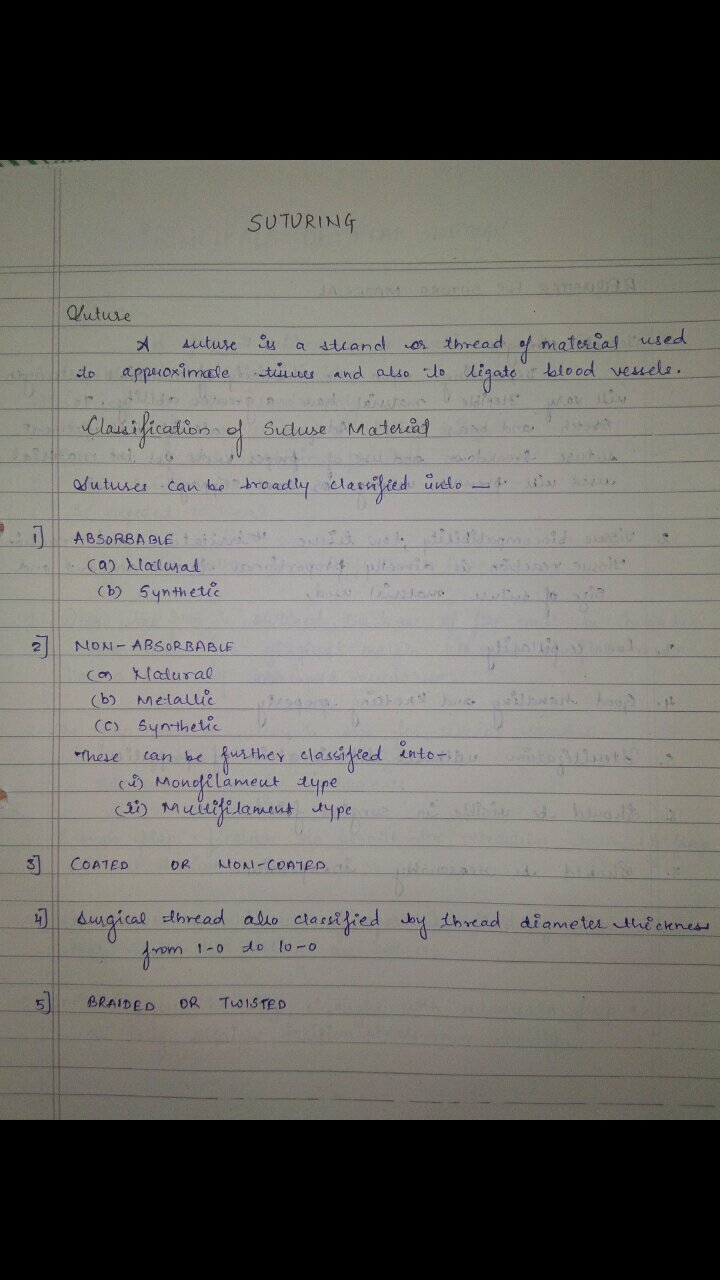 SUTURING
Suture
A suture is a strand or thread of material used
to approximate tissues and also to ligate blood vessels.
Classification of Suture Material
Sutures can be broadly classified into —
1] ABSORBABLE
(a) Natural
(b) Synthetic
2] NON-ABSORBABLE
(a) Natural
(b) Metallic
(c) Synthetic
These can be further classified into-
(i) Monofilament type
(ii) Multifilament type
3] COATED OR NON-COATED
4] Surgical thread also classified by thread diameter thickness
from 1-0 to 10-0
5] BRAIDED OR TWISTED